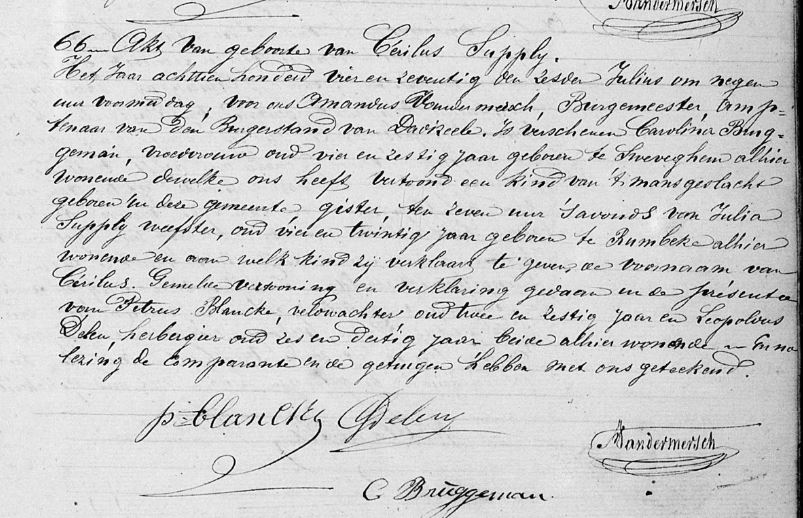 Vandermersch
66en Akt van geboorte van Cérilus Supply.
Het Jaar achttien honderd vier en zeventig den zesden Julius om negen
uur voormiddag, voor ons Amandus Vandermersch, Burgemeester, amp-
tenaar van den Burgerstand van Dadizeele. Is verschenen Carolina Brug-
geman, vroedvrouw oud vier en zestig jaar geboren te Sweveghem alhier
wonende dewelke ons heeft vertoond een kind van 't mansgeslacht
geboren in deze gemeente gister, ten zeven uur 's avonds van Julia
Supply weefster, oud vier en twintig jaar geboren te Rumbeke alhier
wonende en aan welk kind zij verklaart te geven, de voornaam van
Cérilus. Gemelde vertooning en verklaring gedaan in de présentie
van Petrus Blancke, veldwachter oud twee en zestig jaar en Leopoldus
Delen, herbergier oud zes en dertig jaar beide alhier wonende en na
lezing de comparante en de getuigen hebben met ons geteekend.
p. Blancke
Vandermersch
C Bruggeman